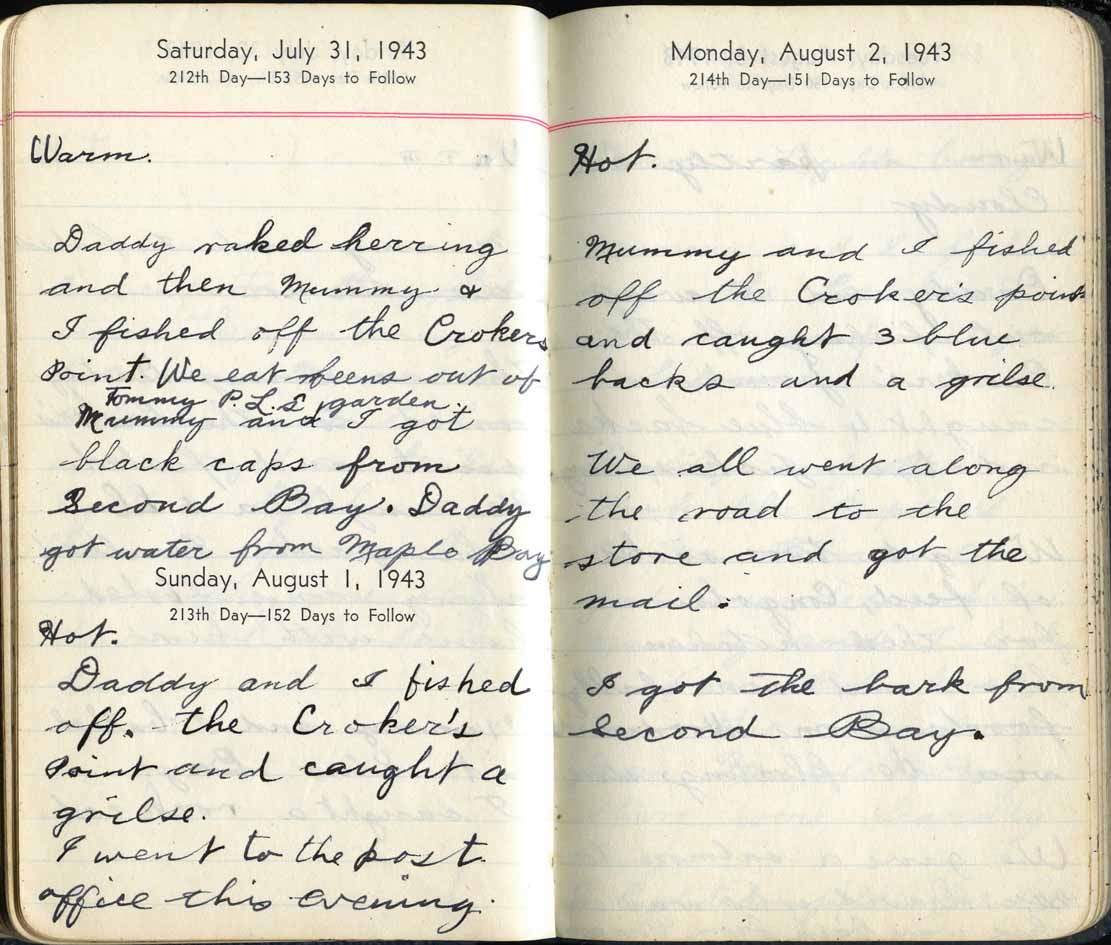 Saturday, July 31, 1943
212th Day—153 Days to Follow
Warm.
Daddy raked herring
and then Mummy &
I fished off the Crokers
Point. We eat beens out of
Tommy P.L.S garden.
Mummy and I got
black caps from
Second Bay. Daddy
got water from Maple Bay
Sunday, August 1, 1943
213th Day—152 Days to Follow
Hot.
Daddy and I fished
off. the Croker's
Point and caught a
grilse.
I went to the post
office this evening.
Monday, August 2, 1943
214th Day—151 Days to Follow
Hot.
Mummy and I fished
off the Croker's point
and caught 3 blue
backs and a grilse.
We all went along
the road to the
store and got the
mail.
I got the bark from
Second Bay.